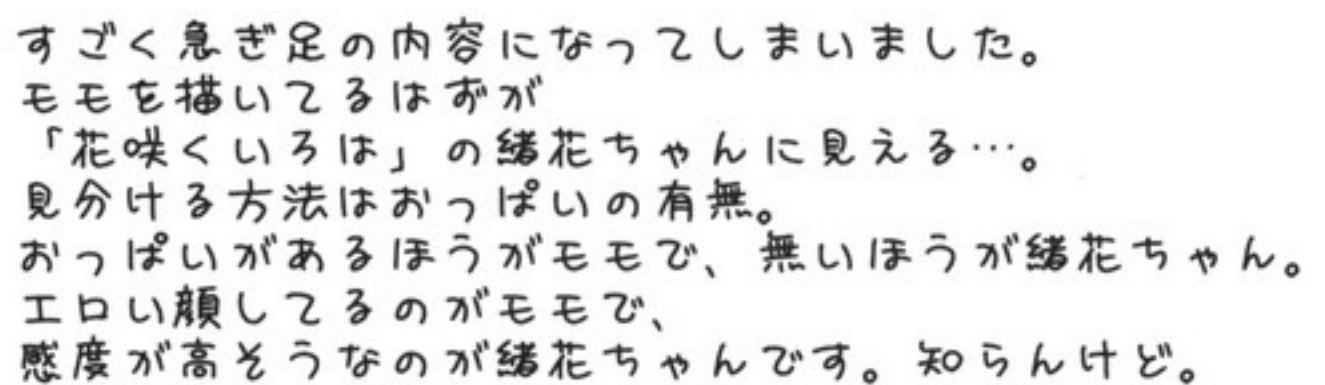 すごく急ぎ足の内容になってしまいました。
モモを描いてるはずが
「花咲くいろは」の緒花ちゃんに見える…。
見分ける方法はおっぱいの有無。
おっぱいがあるほうがモモで、無いほうが緒花ちゃん。
エロい顔してるのがモモで、
感度が高そうなのが緒花ちゃんです。知らんけど。